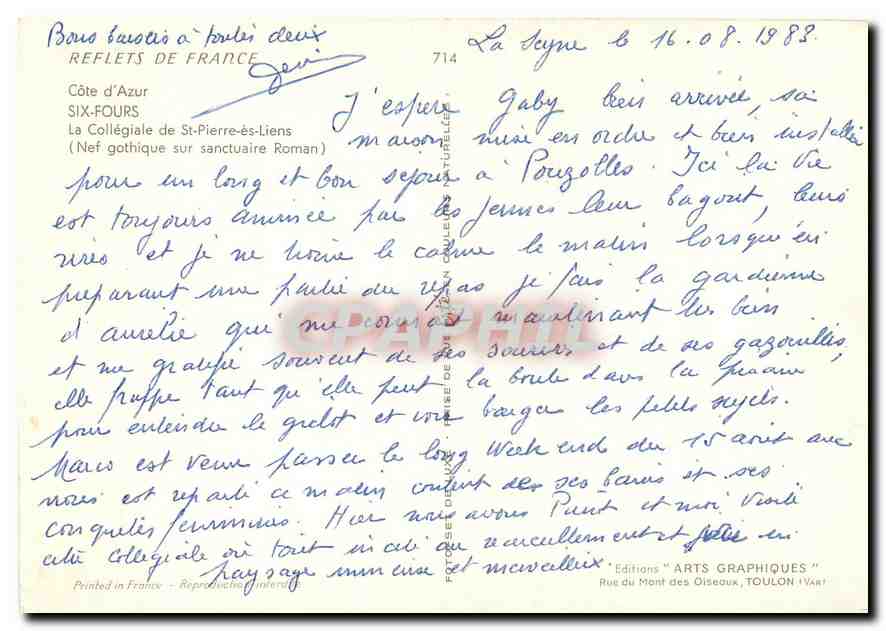 Bons baisers à toutes deux
REFLETS DE FRANCE
714
La Seyne le 16.08.1983.
Côte d'Azur
SIX-FOURS
La Collégiale de St-Pierre-ès-Liens
(Nef gothique sur sanctuaire Roman)
J'espère Gaby bien arrivée, sa
maison mise en ordre et bien installée
pour un long et bon séjour à Pouzolles. Ici la vie
est toujours animée par les jeunes leur bagout, leurs
rires et je ne trouve le calme le matin lorsqu'en
préparant une partie du repas je fais la gardienne
d'aurélie qui me connait maintenant très bien
et me gratifie souvent de ses sourires et de ses gazouillis,
elle frappe tant qu'elle peut la boule dans la
pour entendre le grelot et voir bouger les petits sujets.
Marco est venu passer le long Week end du 15 août avec
nous est reparti ce matin content des ses bains et ses
conquêtes féminines. Hier nous avons et moi visité
cette collégiale où tout incite au recueillement et
paysage immense et merveilleux
CPAPHIL
PRISE DE VUE EN COULEURS NATURELLES
FOTOSET DE LUXE
Printed in France - Reproduction interdite
Editions "ARTS GRAPHIQUES"
Rue du Mont des Oiseaux, TOULON (VAR)